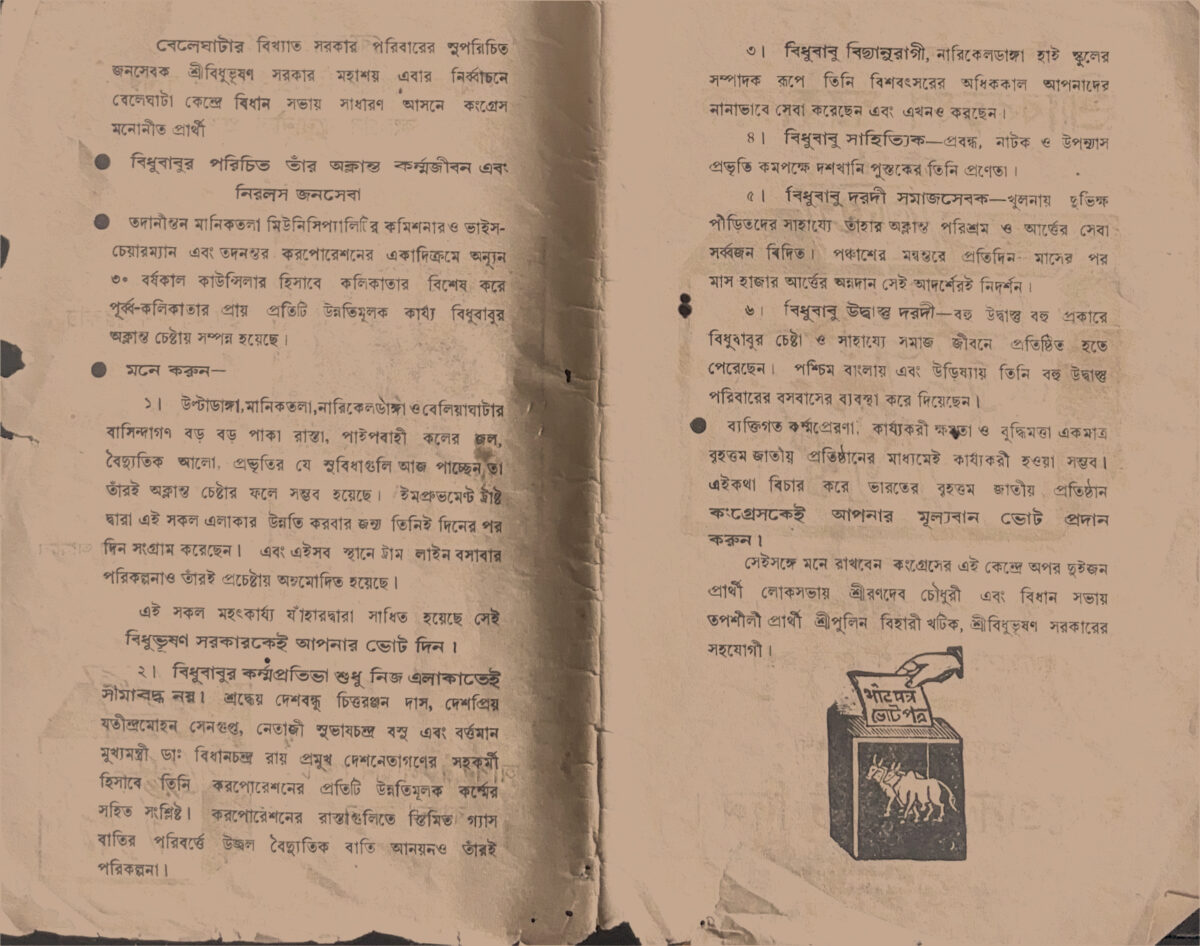 বেলেঘাটার বিখ্যাত সরকার পরিবারের সুপরিচিত
জনসেবক শ্রীবিধুভূষণ সরকার মহাশয় এবার নির্ব্বাচনে
বেলেঘাটা কেন্দ্রে বিধান সভায় সাধারণ আসনে কংগ্রেস
মনোনীত প্রার্থী
● বিধুবাবুর পরিচিত তাঁর অক্লান্ত কর্ম্মজীবন এবং
নিরলস জনসেবা
● তদানীন্তন মানিকতলা মিউনিসিপ্যালিটির কমিশনার ও ভাইস-
চেয়ারম্যান এবং তদনন্তর করপোরেশনের একাদিক্রমে অন্যূন
৩০ বর্ষকাল কাউন্সিলার হিসাবে কলিকাতার বিশেষ করে
পূর্ব্ব-কলিকাতার প্রায় প্রতিটি উন্নতিমূলক কার্য্য বিধুবাবুর
অক্লান্ত চেষ্টায় সম্পন্ন হয়েছে।
● মনে করুন—
১। উল্টাডাঙ্গা,মানিকতলা,নারিকেলডাঙ্গা ও বেলিয়াঘাটার
বাসিন্দাগণ বড় বড় পাকা রাস্তা, পাইপবাহী কলের জল,
বৈদ্যুতিক আলো, প্রভৃতির যে সুবিধাগুলি আজ পাচ্ছেন তা
তাঁরই অক্লান্ত চেষ্টার ফলে সম্ভব হয়েছে। ইমপ্রুভমেন্ট ট্রাষ্ট
দ্বারা এই সকল এলাকার উন্নতি করবার জন্য তিনিই দিনের পর
দিন সংগ্রাম করেছেন। এবং এইসব স্থানে ট্রাম লাইন বসাবার
পরিকল্পনাও তাঁরই প্রচেষ্টায় অনুমোদিত হয়েছে।
এই সকল মহৎকার্য্য যাঁহারদ্বারা সাধিত হয়েছে সেই
বিধুভূষণ সরকারকেই আপনার ভোট দিন।
২। বিধুবাবুর কর্ম্মপ্রতিভা শুধু নিজ এলাকাতেই
সীমাবদ্ধ নয়। শ্রদ্ধেয় দেশবন্ধু চিত্তরঞ্জন দাস, দেশপ্রিয়
যতীন্দ্রমোহন সেনগুপ্ত, নেতাজী সুভাষচন্দ্র বসু এবং বর্ত্তমান
মুখ্যমন্ত্রী ডাঃ বিধানচন্দ্র রায় প্রমুখ দেশনেতাগণের সহকর্মী
হিসাবে তিনি করপোরেশনের প্রতিটি উন্নতিমূলক কর্ম্মের
সহিত সংশ্লিষ্ট। করপোরেশনের রাস্তাগুলিতে স্তিমিত গ্যাস
বাতির পরিবর্ত্তে উজ্জ্বল বৈদ্যুতিক বাতি আনয়নও তাঁরই
পরিকল্পনা।
৩। বিধুবাবু বিদ্যানুরাগী, নারিকেলডাঙ্গা হাই স্কুলের
সম্পাদক রূপে তিনি বিশবৎসরের অধিককাল আপনাদের
নানাভাবে সেবা করেছেন এবং এখনও করছেন।
৪। বিধুবাবু সাহিত্যিক—প্রবন্ধ, নাটক ও উপন্যাস
প্রভৃতি কমপক্ষে দশখানি পুস্তকের তিনি প্রণেতা।
৫। বিধুবাবু দরদী সমাজসেবক—খুলনায় দুভিক্ষ
পীড়িতদের সাহায্যে তাঁহার অক্লান্ত পরিশ্রম ও আর্ত্তের সেবা
সর্ব্বজন বিদিত। পঞ্চাশের মন্বন্তরে প্রতিদিন মাসের পর
মাস হাজার আর্ত্তের অন্নদান সেই আদর্শেরই নিদর্শন।
৬। বিধুবাবু উদ্বাস্তু দরদী—বহু উদ্বাস্তু বহু প্রকারে
বিধুবাবুর চেষ্টা ও সাহায্যে সমাজ জীবনে প্রতিষ্ঠিত হতে
পেরেছেন। পশ্চিম বাংলায় এবং উড়িষ্যায় তিনি বহু উদ্বাস্তু
পরিবারের বসবাসের ব্যবস্থা করে দিয়েছেন।
● ব্যক্তিগত কর্ম্মপ্রেরণা, কার্য্যকরী ক্ষমতা ও বুদ্ধিমত্তা একমাত্র
বৃহত্তম জাতীয় প্রতিষ্ঠানের মাধ্যমেই কার্য্যকরী হওয়া সম্ভব।
এইকথা বিচার করে ভারতের বৃহত্তম জাতীয় প্রতিষ্ঠান
কংগ্রেসকেই আপনার মূল্যবান ভোট প্রদান
করুন।
সেইসঙ্গে মনে রাখবেন কংগ্রেসের এই কেন্দ্রে অপর দুইজন
প্রার্থী লোকসভায় শ্রীরণদেব চৌধুরী এবং বিধান সভায়
তপশীলী প্রার্থী শ্রীপুলিন বিহারী খটিক, শ্রীবিধুভূষণ সরকারের
সহযোগী।
ভোটপত্র